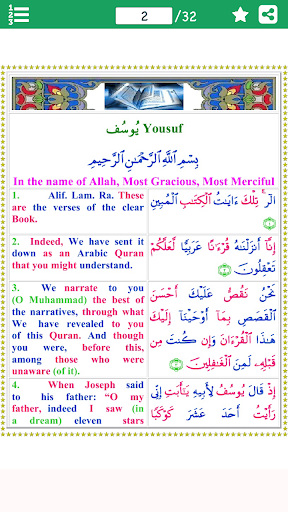 1
2
3
2 /32
يُوسُف Yousuf
بِسْمِ ٱللَّهِ ٱلرَّحْمَٰنِ ٱلرَّحِيمِ
In the name of Allah, Most Gracious, Most Merciful
1. Alif. Lam. Ra. These
are the verses of the clear
Book.
الٓرۚ تِلْكَ ءَايَٰتُ ٱلْكِتَٰبِ ٱلْمُبِينِ
2. Indeed, We have sent it
down as an Arabic Quran
that you might understand.
إِنَّآ أَنزَلْنَٰهُ قُرْءَٰنًا عَرَبِيًّا لَّعَلَّكُمْ
تَعْقِلُونَ
3. We narrate to you
(O Muhammad) the best of
the narratives, through what
We have revealed to you
of this Quran. And though
you were, before this,
among those who were
unaware (of it).
نَحْنُ نَقُصُّ عَلَيْكَ أَحْسَنَ
ٱلْقَصَصِ بِمَآ أَوْحَيْنَآ إِلَيْكَ
هَٰذَا ٱلْقُرْءَانَ وَإِن كُنتَ مِن
قَبْلِهِۦ لَمِنَ ٱلْغَٰفِلِينَ
4. When Joseph said
to his father: “O my
father, indeed I saw (in
a dream) eleven stars
إِذْ قَالَ يُوسُفُ لِأَبِيهِ يَٰٓأَبَتِ إِنِّى
رَأَيْتُ أَحَدَ عَشَرَ كَوْكَبًا